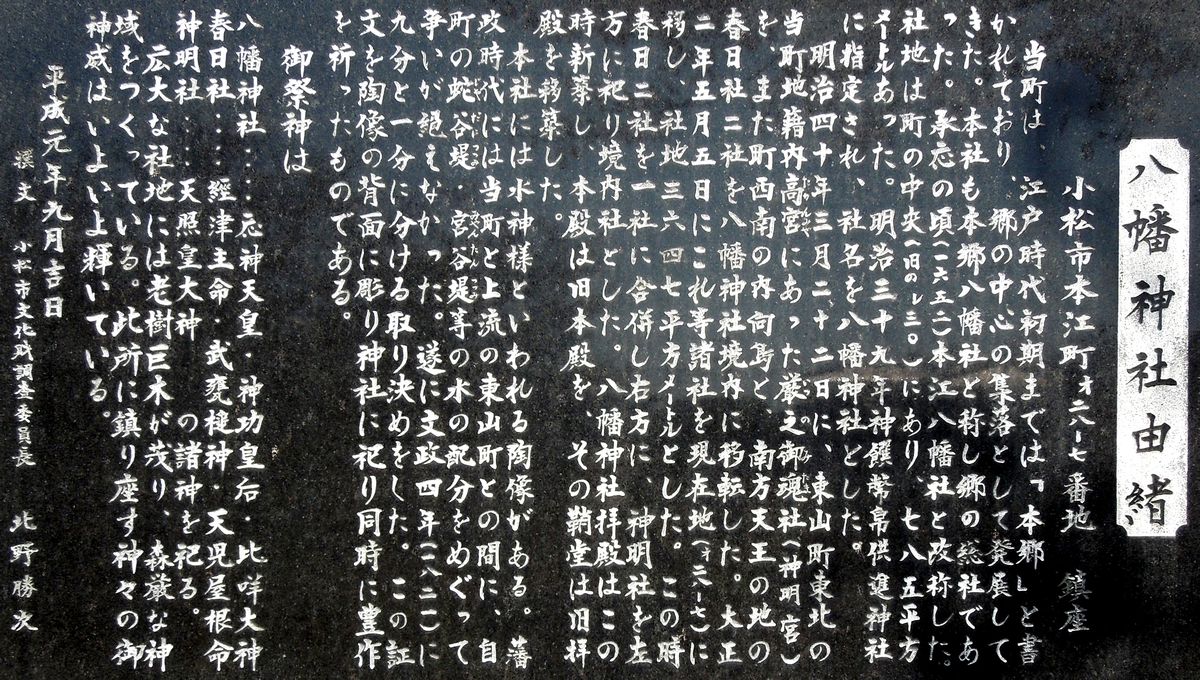 八幡神社由緒
小松市本江町オ二八ー七番地　鎮座
当町は、江戸時代初期までは「本郷」と書
かれており、郷の中心の集落として発展して
きた。本社も本郷八幡社と称し郷の総社であ
った。承応の頃(一六五二)本江八幡社と改称した。
社地は町の中央(旧のレ三〇)にあり、七八五平方
メートルあった。明治三十九年神饌幣帛供進神社
に指定され、社名を八幡神社とした。
明治四十年三月二十二日に、東山町東北の
当町地籍内高宮にあった厳之御魂社(神明宮)
を、また町西南の内向島と、南方天王の地の
春日社二社を八幡神社境内に移転した。大正
二年五月五日にこれ等諸社を現在地(オ二八ー七)に
移し、社地三六四七平方メートルとした。この時
春日二社を一社に合併し右方に、神明社を左
方に祀り境内社とした。八幡神社拝殿はこの
時新築し、本殿は旧本殿を、その鞘堂は旧拝
殿を移築した。
本社には水神様といわれる陶像がある。藩
政時代には、当町と上流の東山町との間に、自
町の蛇谷堤・宮谷堤等の水の配分をめぐって
争いが絶えなかった。遂に文政四年(一八二一)に
九分と一分に分ける取り決めをした。この証
文を陶像の背面に彫り神社に祀り同時に豊作
を祈ったものである。
御祭神は
八幡神社‥‥応神天皇・神功皇后・比咩大神
春日社‥‥‥經津主命・武甕槌神・天児屋根命
神明社‥‥‥天照皇大神　の諸神を祀る。
広大な社地には老樹巨木が茂り、森厳な神
域をつくっている。此所に鎮り座す神々の御
神威はいよいよ輝いている。
平成元年九月吉日
撰文　小松市文化財調査委員長　北野勝次